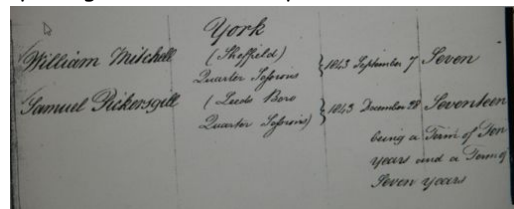 York
William Mitchell (Sheffield) Quarter Sessions } 1843 September 7 Seven
Samuel Pickersgill (Leeds Boro Quarter Sessions) } 1843 December 28 Seventeen
being a Term of Ten
years and a Term of
Seven years